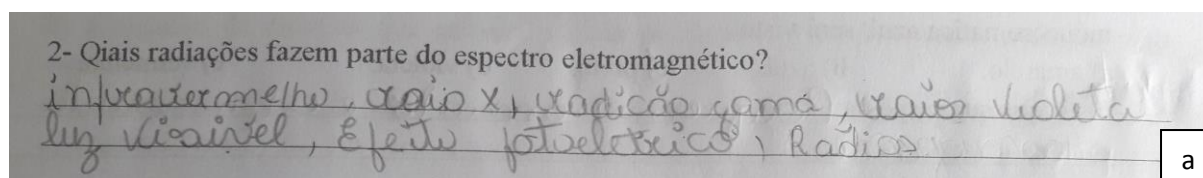 2- Qiais radiações fazem parte do espectro eletromagnético?
infravermelho, raio x, radição gama, raios violeta
luz visivel, Efeito fotoeletrico, Radios
a